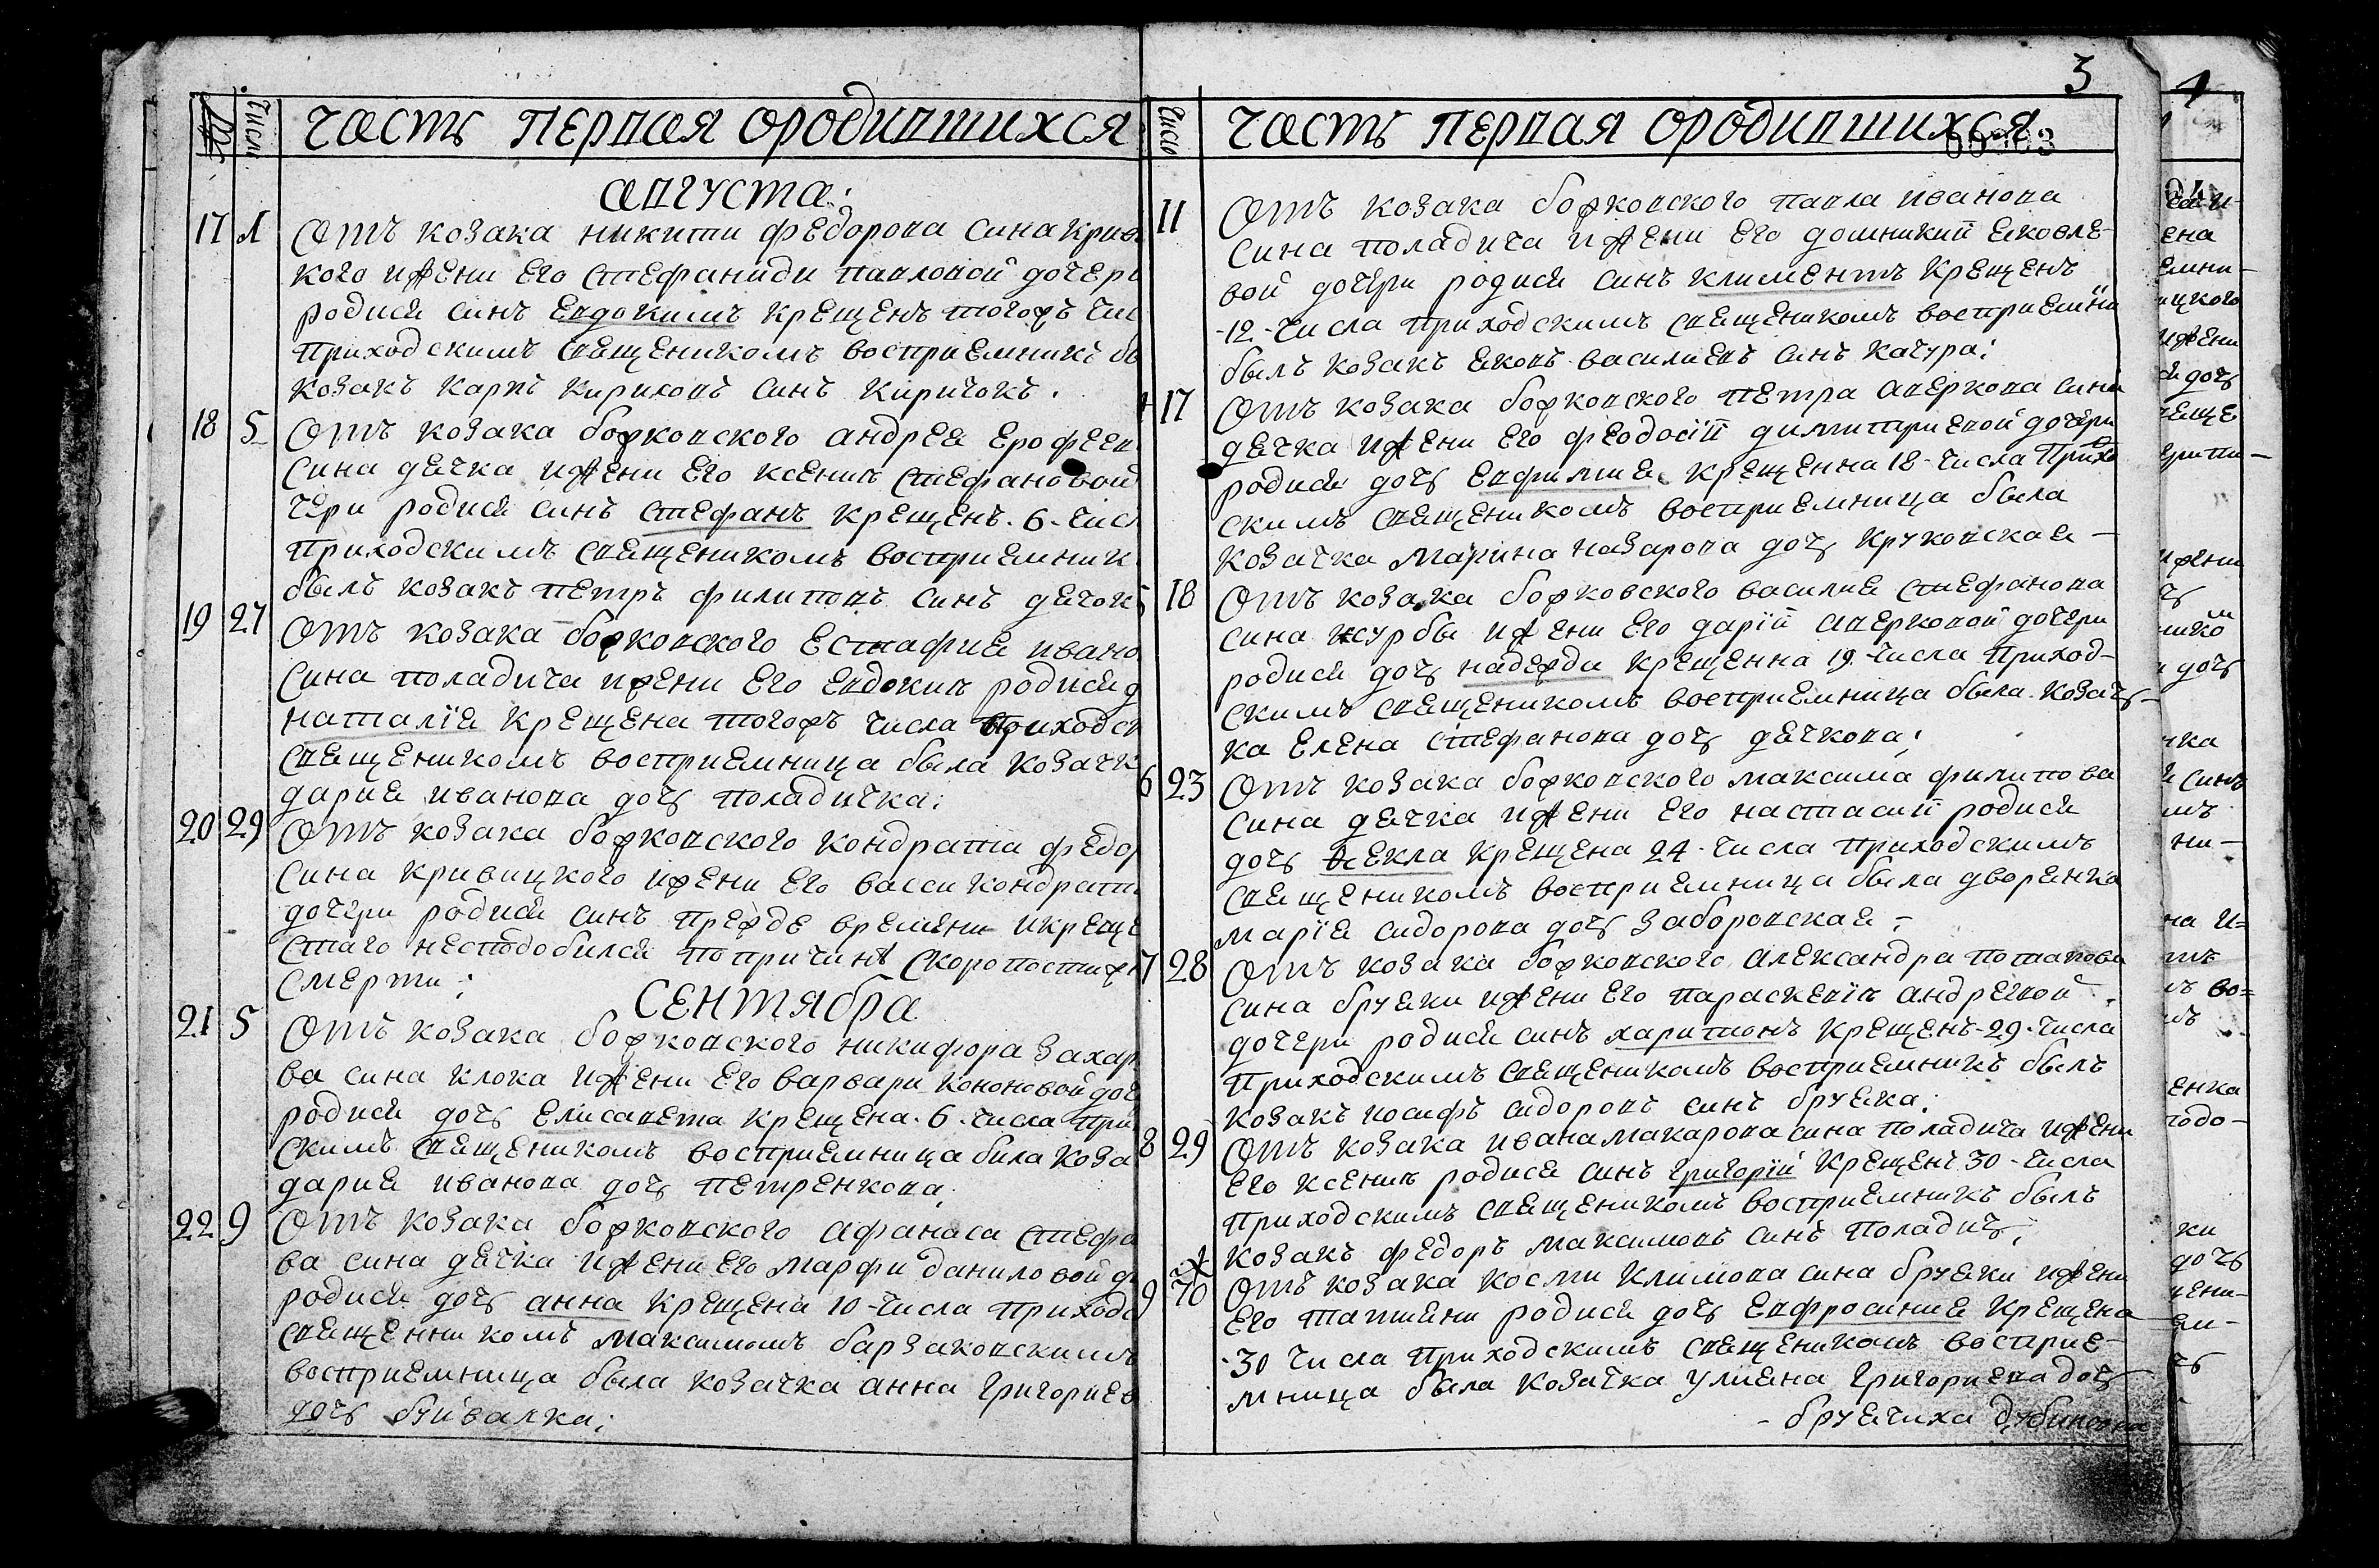 Числа
часть первая ородившихся
августа:
17 Л Отъ козака никити федорова сина крив
кого ижени его стефаниди павловой дочери
родися синъ евдокимъ крещенъ тогожъ чис
приходскимъ священикомъ восприемникъ бы
козакъ карпъ кириловъ синъ киричокъ.
18 5 Отъ козака божковского андрея ерофеев
сина дячка ижени его ксении стефановой
чери родися синъ стефанъ крещенъ. 6. числ
приходскимъ священикомъ восприемник
былъ козакъ петръ филиповъ синъ дячокъ
19 27 Отъ козака божковского естафия ивано
сина поладича ижени его евдокии родися д
наталїя крещена тогожъ числа приходск
священикомъ восприемница была козачк
дария иванова дочь поладичка:
20 29 Отъ козака божковского кондрата федор
сина кривицкого ижени его васси кондрати
дочери родися синъ прежде времени икреще
стаго несподобился попричинѣ скоропостиж
смерти;
Сентября
21 5 Отъ козака божковского никифора захар
ва сина клока ижени его варвари кононовой доч
родися дочь елисавета крещена. 6. числа при
скимъ священикомъ восприемница била коза
дария иванова дочь петренкова.
22 9 Отъ козака божковского афанаса стефа
ва сина дячка ижени его марфи даниловой д
родися дочь анна крещена 10 - числа приходс
священникомъ максимомъ барзаковскимъ
восприемница была козачка анна григориев
дочь буйвалка;
3
Число
часть первая ородившихся
11 Отъ козака божковского павла иванова
сина поладича ижени его домникий яковле-
вой дочери родися синъ климентъ крещенъ
-12 - числа приходскимъ священикомъ восприемни
былъ козакъ яковъ василиевъ синъ качура;
17 Отъ козака божковского петра аверкова сина
дячка ижени его феодосїй димитриевой дочери
родися дочь евфимия крещенна 18 - числа прихо
скимъ священикомъ восприемница была
козачка марина назарова дочь круковская -
18 Отъ козака божковского василия стефанова
сина журбы ижени его дарїй аверковой дочери
родися дочь надежди крещенна 19. числа приход-
скимъ священикомъ восприемница была козач-
ка елена стефанова дочь дячкова;
6 23 Отъ козака божковского максима филипова
сина дячка ижени его настасий родися
дочь текла крещена 24 - числа приходскимъ
священикомъ восприемница была дворянка
марїя сидорова дочь заборовская -
7 28 Отъ козака божковского александра потапова
сина бруяки ижени его параскевїи андреевой
дочери родися синъ харитонъ крещенъ - 29 - числа
приходскимъ священикомъ восприемникъ былъ
козакъ иосифъ сидоровъ синъ бруяка;
8 29 Отъ козака ивана макарова сина поладича ижени
его ксении родися синъ григорїй крещенъ 30 - числа
приходскимъ священикомъ восприемникъ былъ
козакъ федоръ максимовъ синъ поладичъ;
9 Отъ козака косми климова сина бруяки ижени
его татияни родися дочь евфросиния крещена
-30 числа приходскимъ священикомъ восприе-
мница была козачка улияна григориева дочь
- бруячиха
4